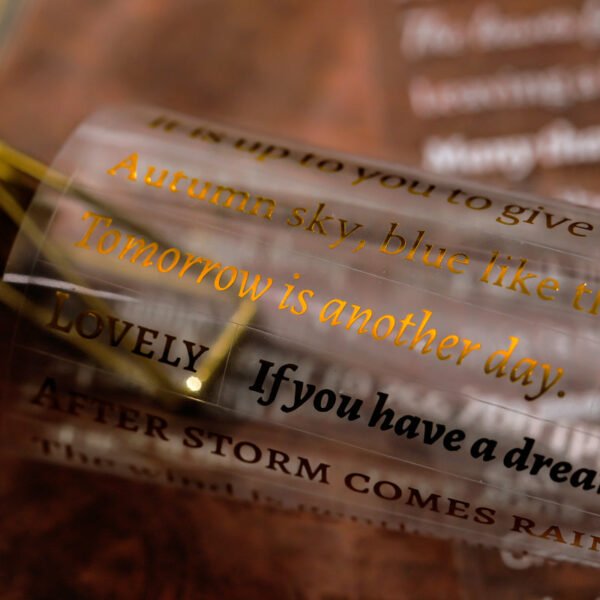 It is up to you to give
Autumn sky, blue like th
Tomorrow is another day.
LOVELY
If you have a drea
AFTER STORM COMES RAIN
The wind is
Many tha